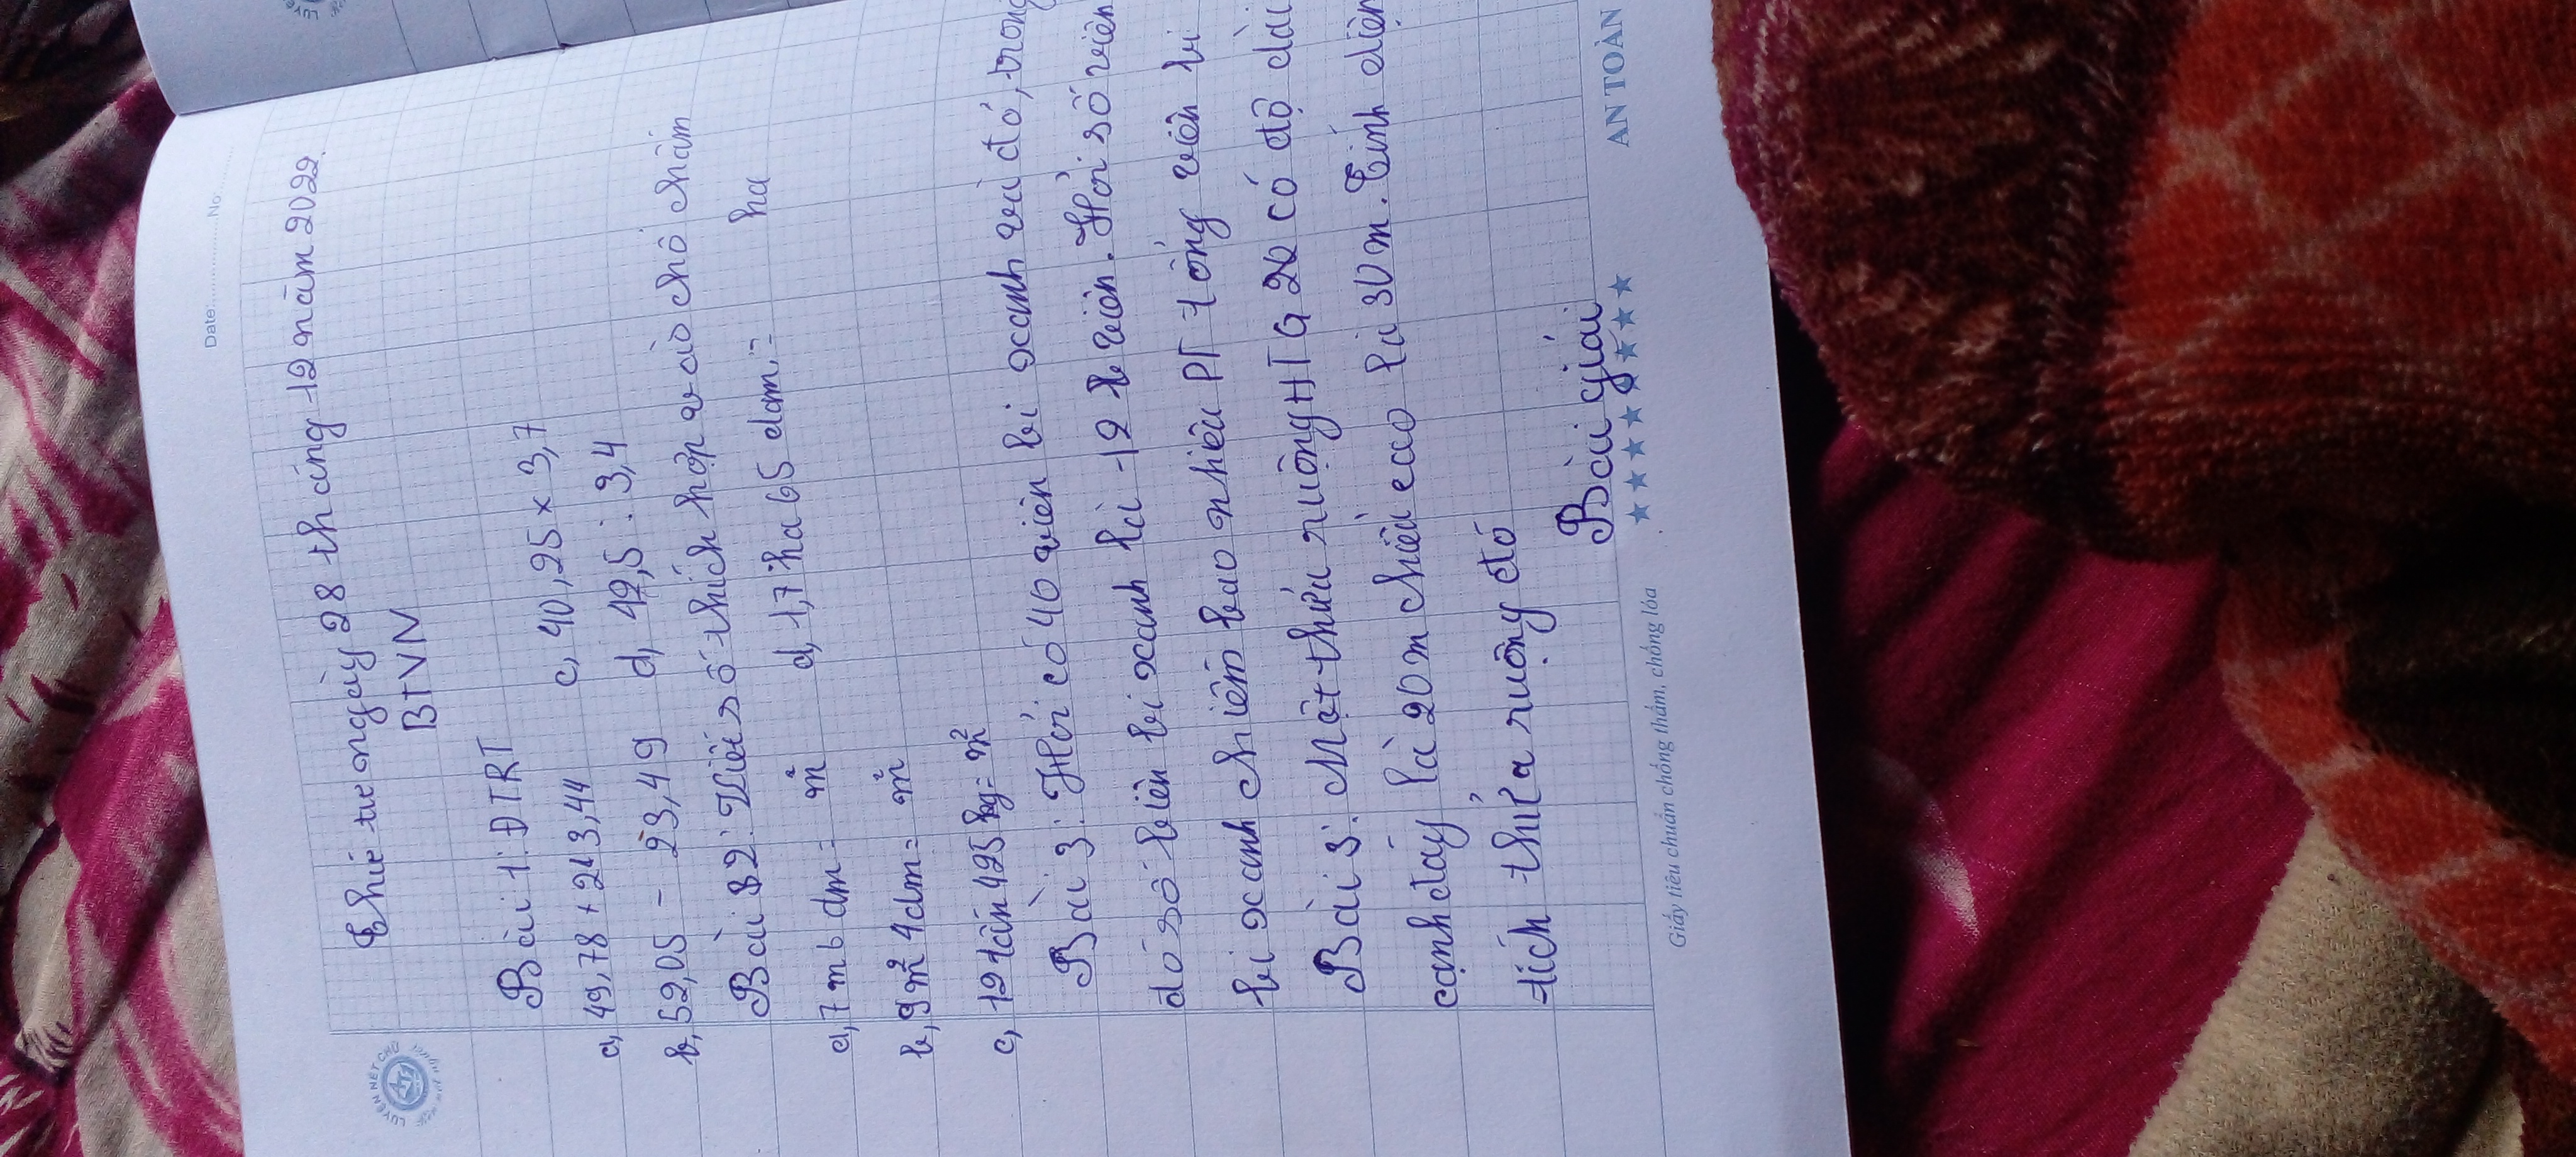 Date: No
Thứ tư ngày 28 tháng 12 năm 2022
BTVN
Bài 1: ĐTRT
a, 49,78 + 243,44 c, 40,25 x 3,7
b, 52,05 - 23,49 d, 42,5 : 3,4
Bài 2: Viết số thích hợp vào chỗ chấm
a, 7 m 6 dm = m d, 1,7 ha 65 dam = ha
b, 9 m² 4 dm = m
c, 12 tấn 425 kg = m²
Bài 3: Hỏi có 40 viên bi xanh và đỏ, trong
đó số biên bi xanh là 12 viên. Hỏi số viên
bi xanh chiếm bao nhiêu PT tổng viên bi
Bài 3: Một thửa ruộng HTG có độ dài
cạnh đáy là 20 m chiều cao là 30 m. Tính diện
tích thửa ruộng đó
Bài giải
Giấy tiêu chuẩn chống thấm, chống lóa
AN TOÀN
LUYỆN NÉT CHỮ